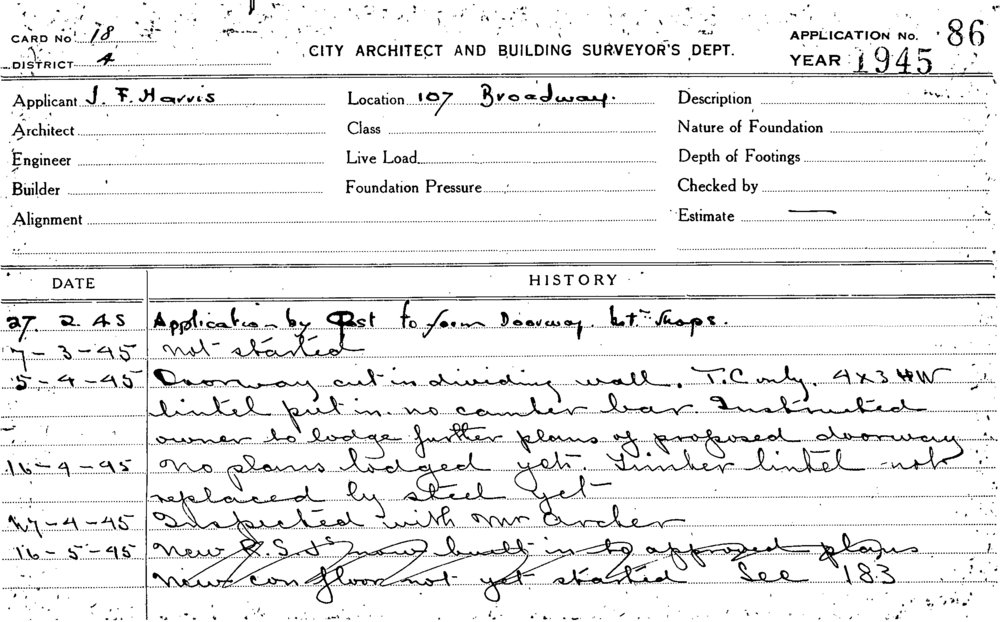 CARD No 18
DISTRICT 4
CITY ARCHITECT AND BUILDING SURVEYOR'S DEPT.
APPLICATION No. 86
YEAR 1945
Applicant J. F. Harris
Location 107 Broadway.
Description
Architect
Class
Nature of Foundation
Engineer
Live Load
Depth of Footings
Builder
Foundation Pressure
Checked by
Alignment
Estimate —
DATE
HISTORY
27. 2. 45 Application by to form Doorway btn shops.
7-3-45 not started
5-4-45 Doorway cut in dividing wall. T.C only. 4x3 HW
lintel put in. no camber bar. Instructed
owner to lodge further plans of proposed doorway
16-4-45 No plans lodged yet. Timber lintel not
replaced by steel yet
27-4-45 Inspected with Mr Archer
16-5-45 New R.S.Js now built in to approved plans
New con floor not yet started See 183